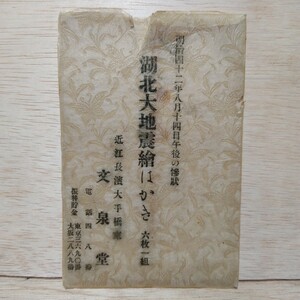 明治四十二年八月十四日午後の惨狀
湖北大地震繪はがき 六枚一組
近江長濱大手橋東
文泉堂
電話四八番
振替貯金 東京三六九〇番
大阪二八九番